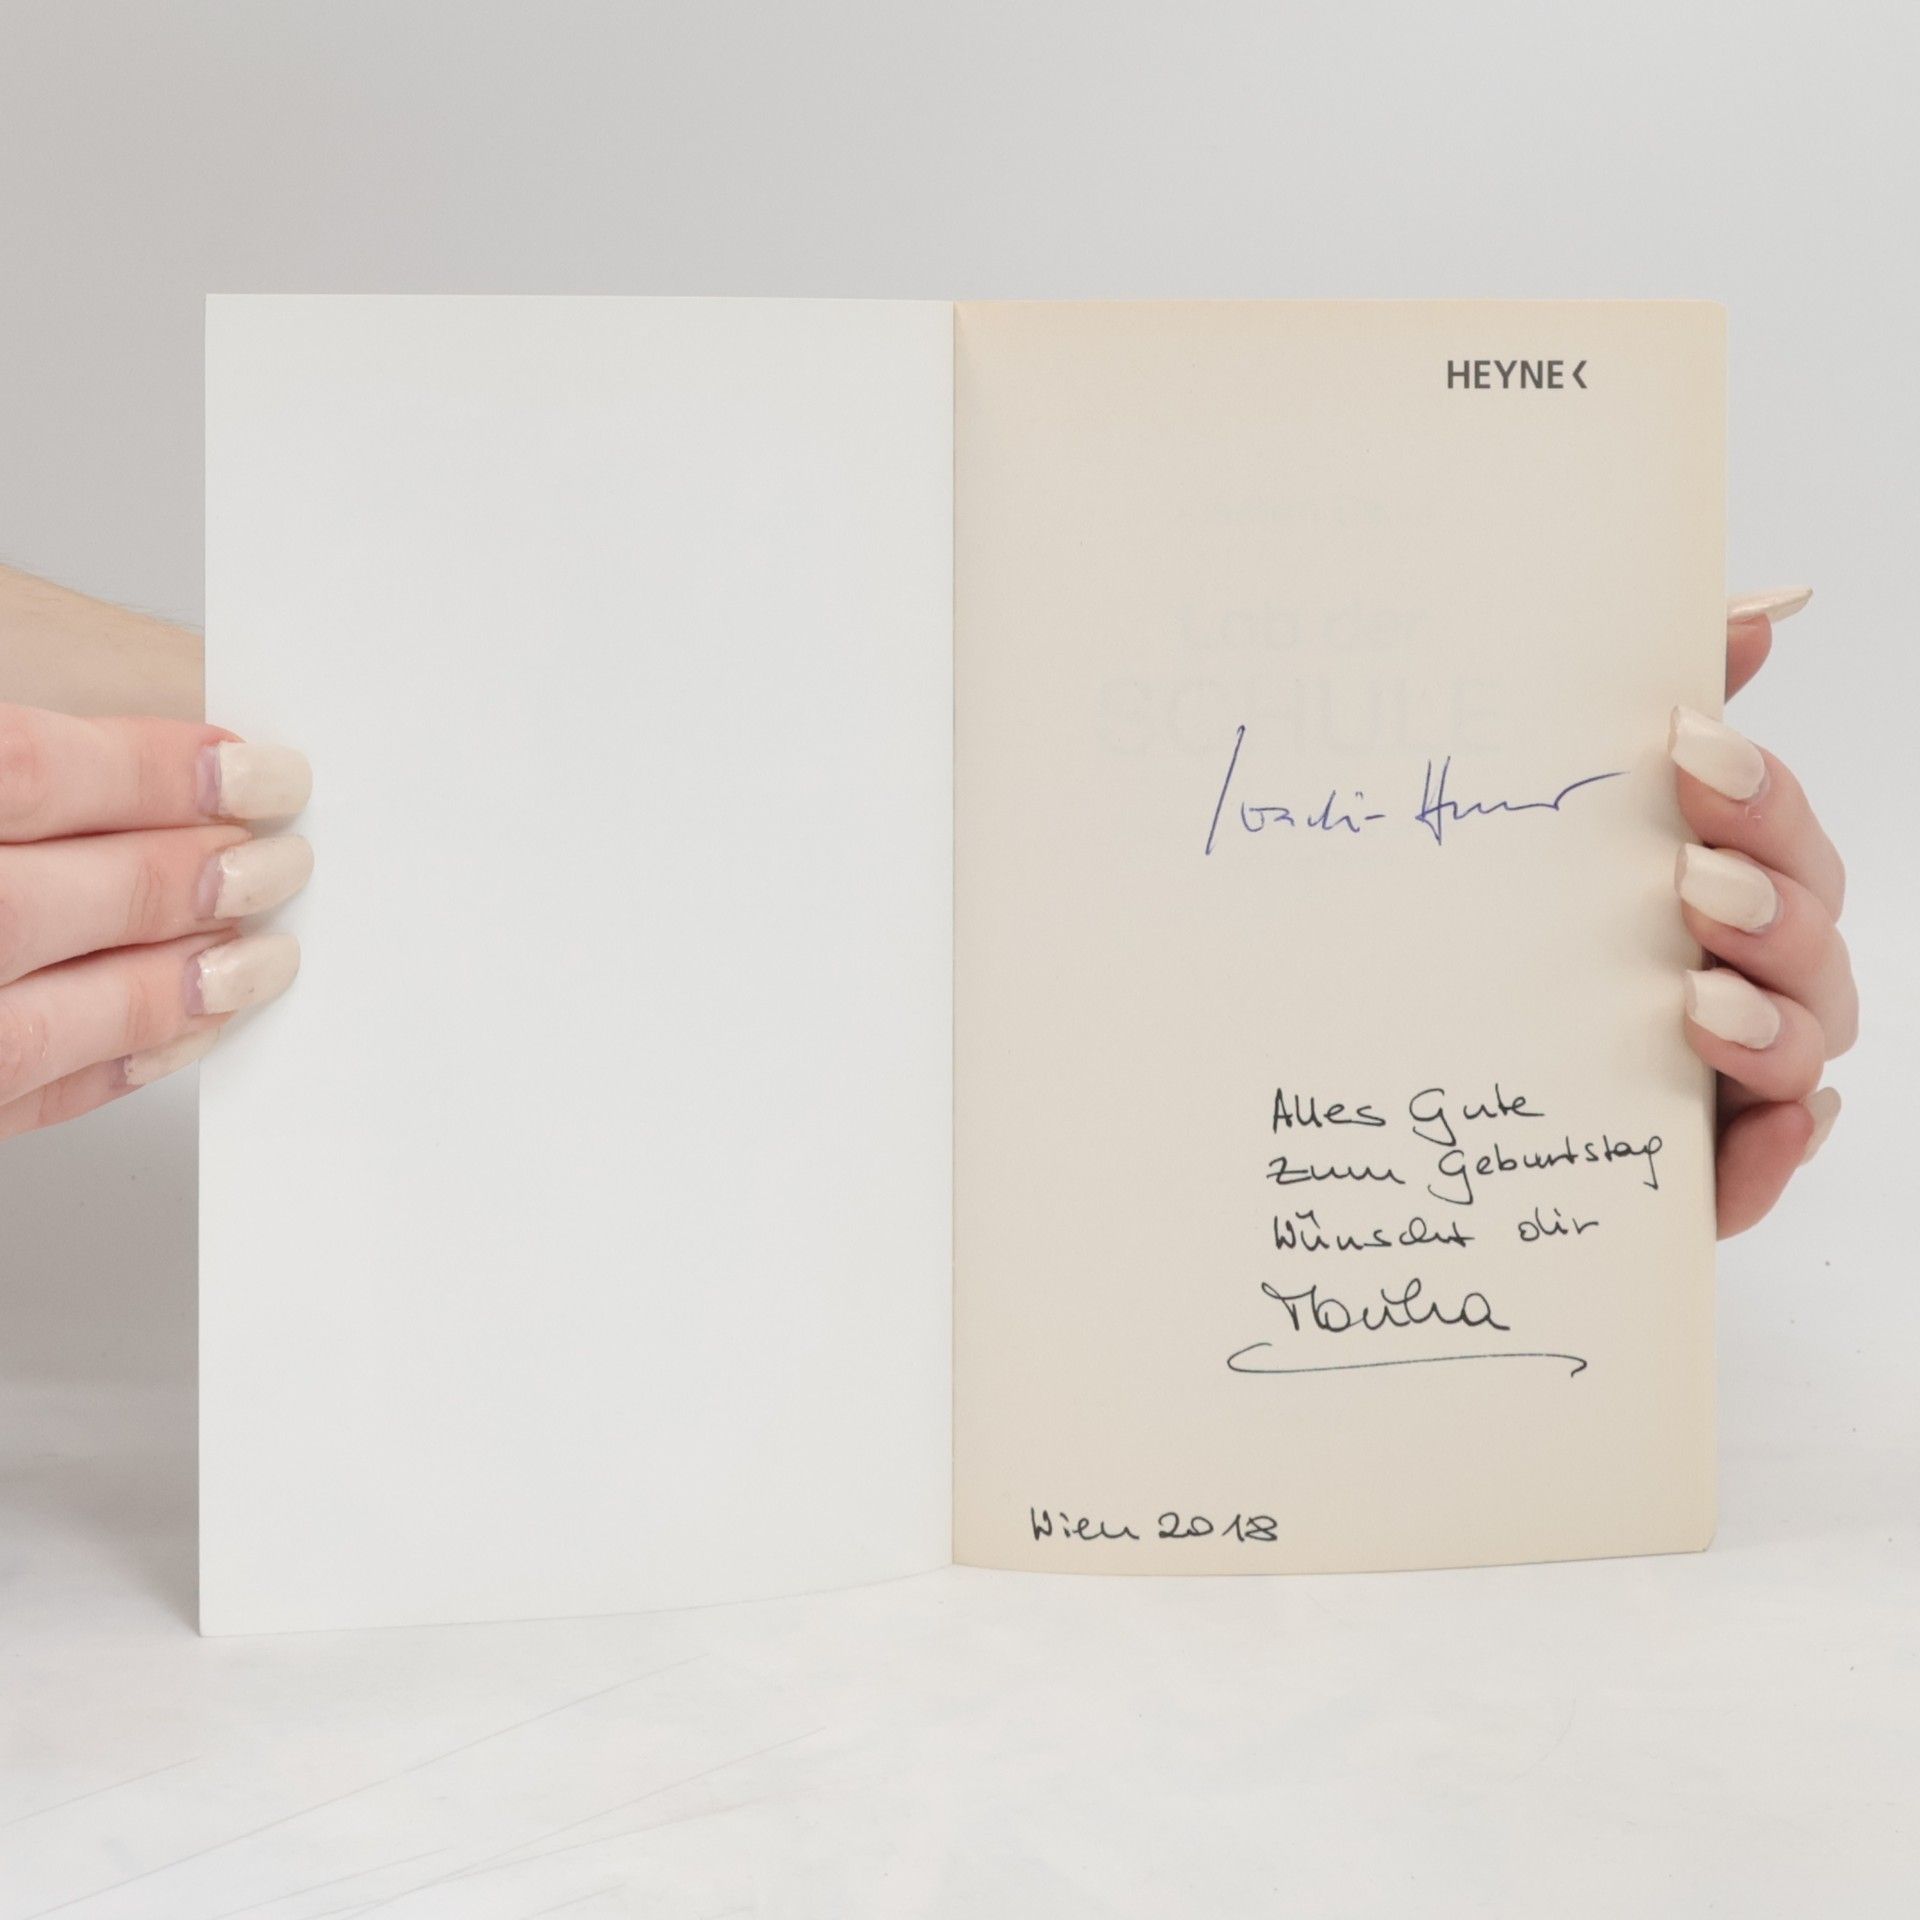 HEYNE<
Lob der
SCHULE
Joachim
Alles Gute
zum Geburtstag
Wünscht dir
Wien 2018